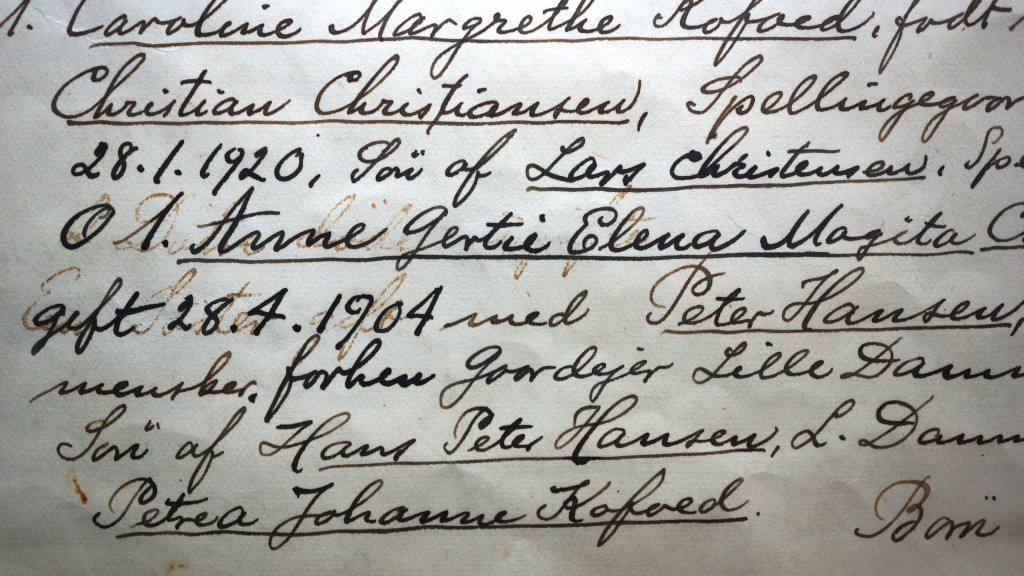 1. Caroline Margrethe Kofoed, født
Christian Christiansen, Spellingegoor
28.1.1920, Sön af Lars Christensen. Spe
O 1. Anne Gertie Elena Magita C
gift 28.4.1904 med Peter Hansen,
mensker. forhen Goordejer Lille Damm
Sön af Hans Peter Hansen, L. Damm
Petrea Johanne Kofoed.
Börn